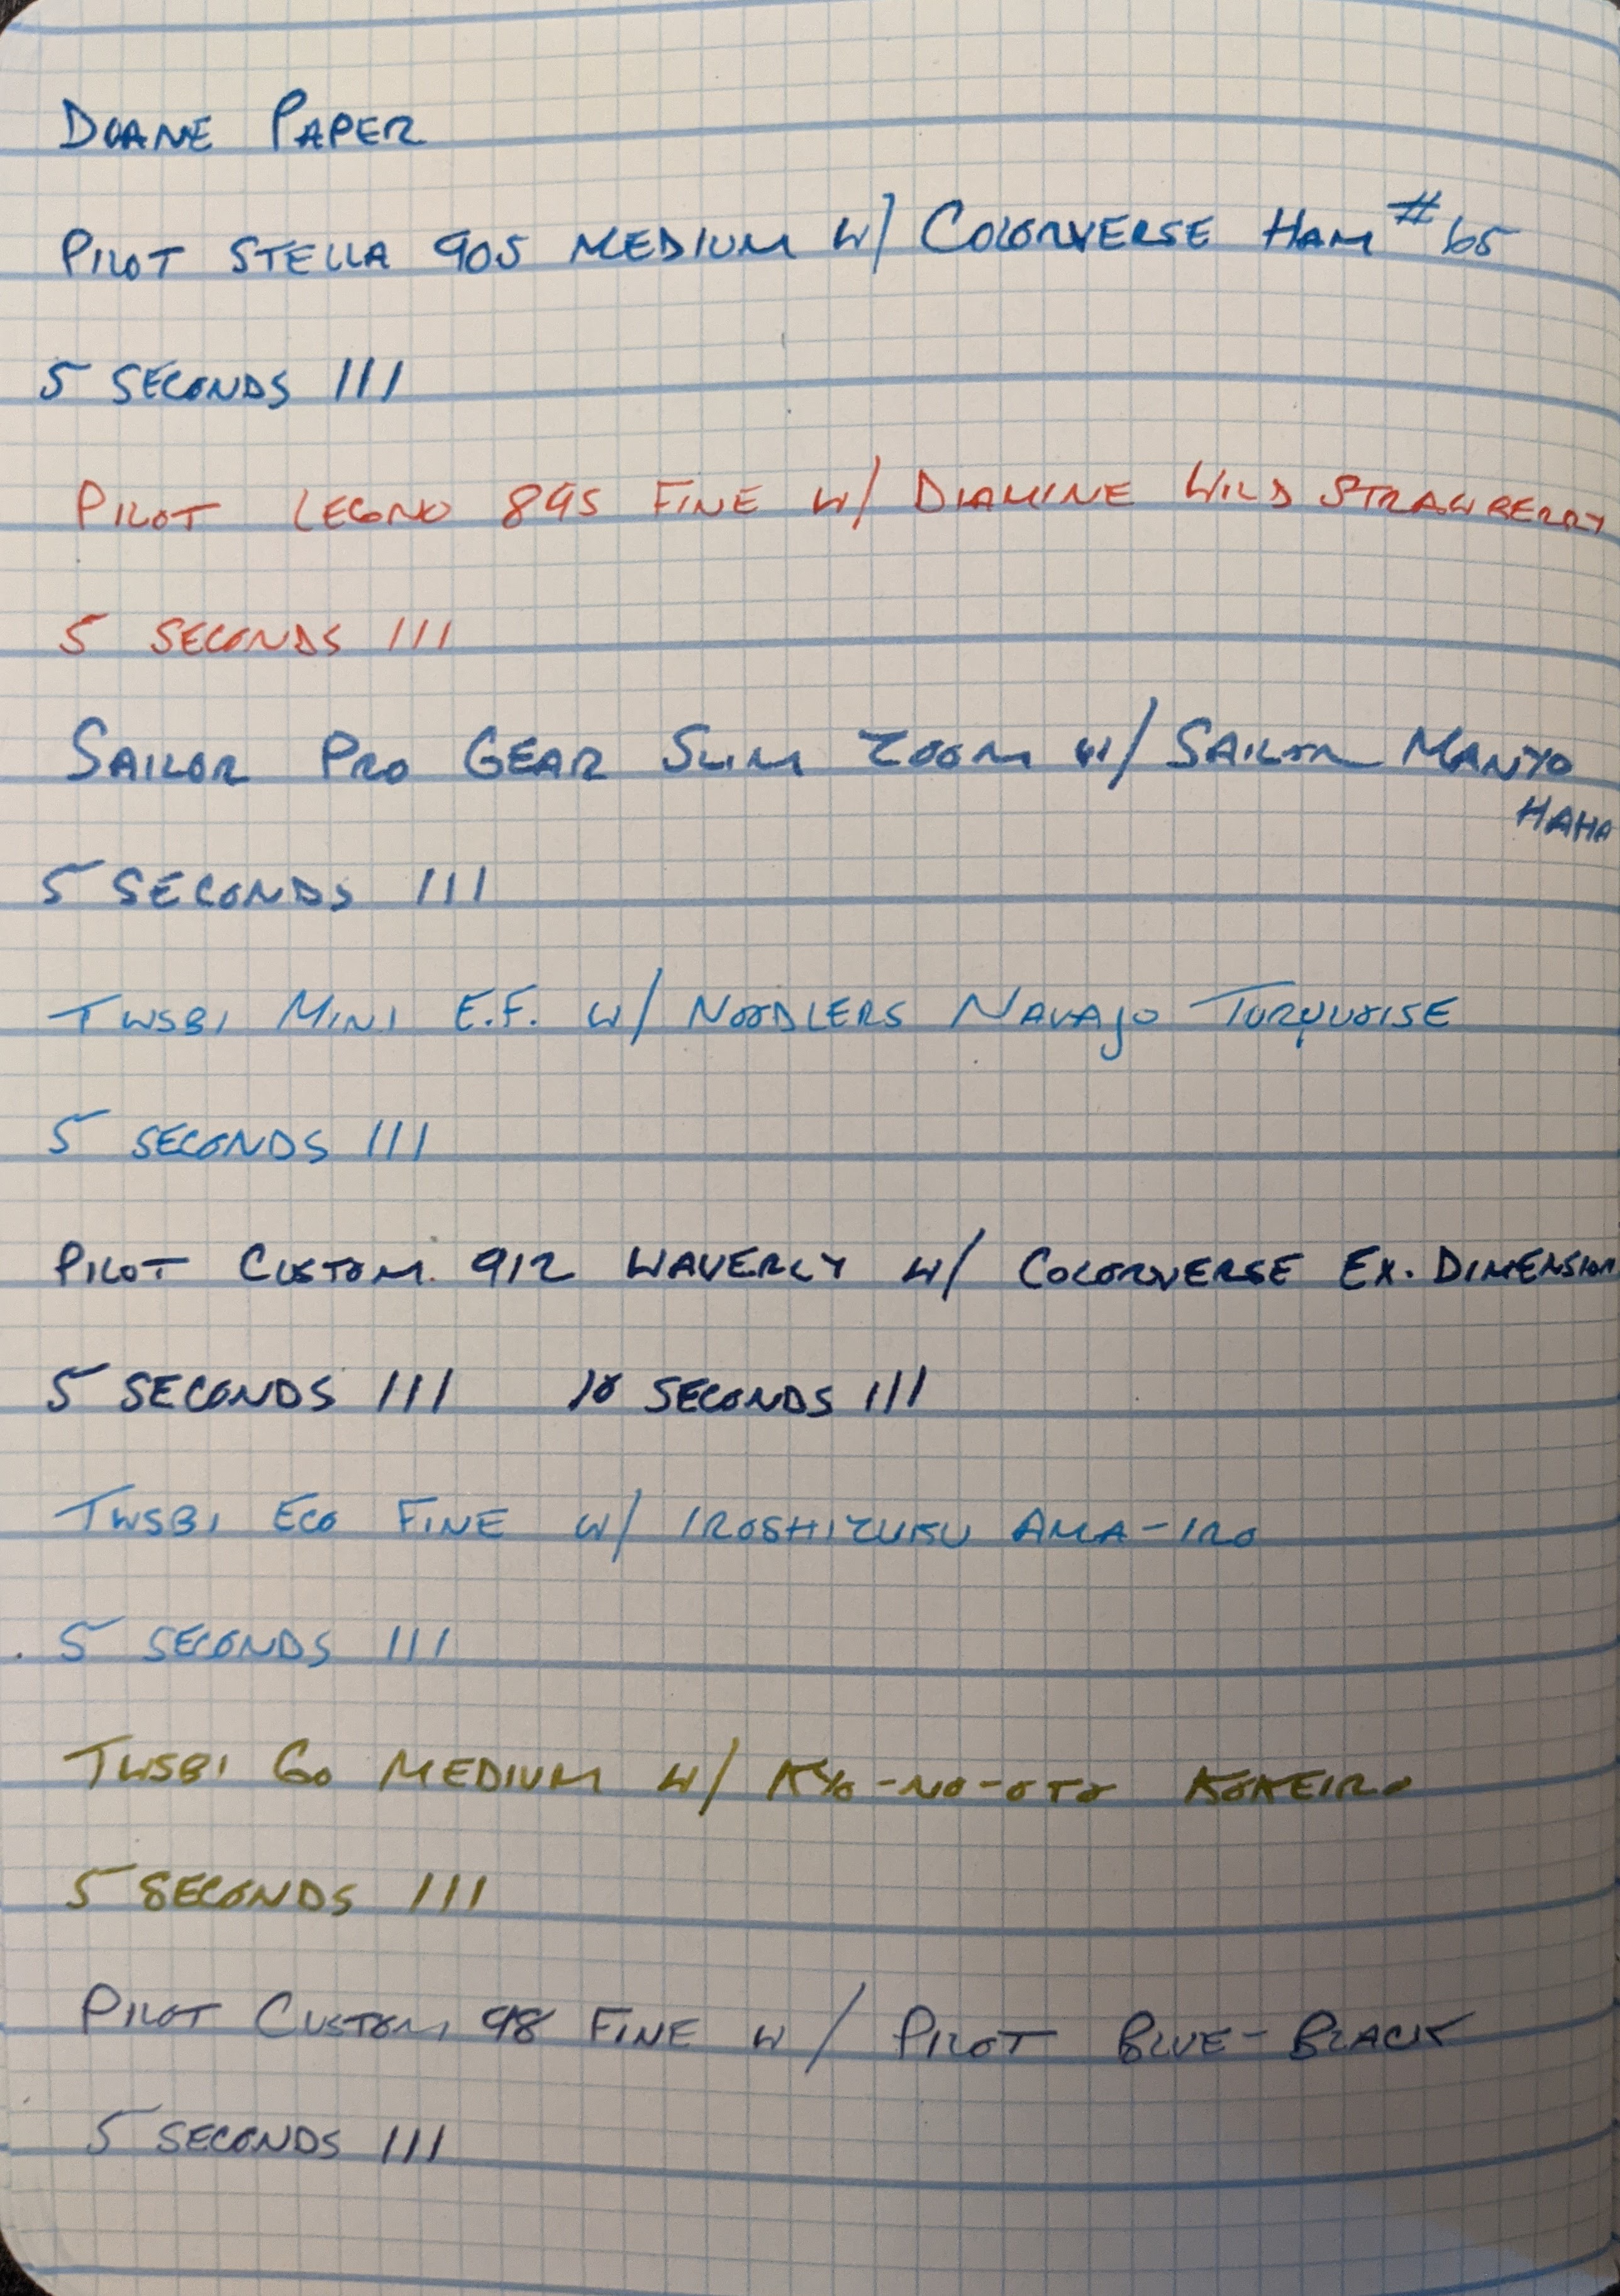 DOANE PAPER
PILOT STELLA 90S MEDIUM W/ COLORVERSE HAM #65
5 SECONDS III
PILOT LEGNO 89S FINE W/ DIAMINE WILD STRAWBERRY
5 SECONDS III
SAILOR PRO GEAR SLIM ZOOM W/ SAILOR MANYO
HAHA
5 SECONDS III
TWSBI MINI E.F. W/ NOODLERS NAVAJO TURQUOISE
5 SECONDS III
PILOT CUSTOM 912 WAVERLY W/ COLORVERSE EX. DIMENSION
5 SECONDS III 10 SECONDS III
TWSBI ECO FINE W/ IROSHIZUKU AMA-IRO
5 SECONDS III
TWSBI GO MEDIUM W/ KYO-NO-OTO KOKEIRO
5 SECONDS III
PILOT CUSTOM 98 FINE W/ PILOT BLUE-BLACK
5 SECONDS III